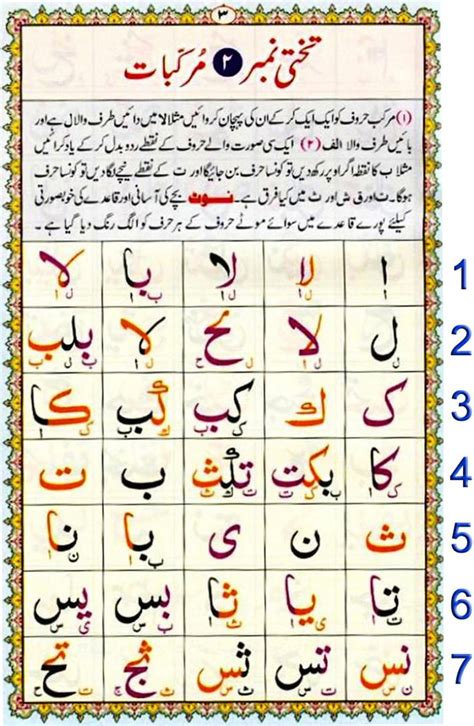 ٣
تختی نمبر ٢ مرکبات
(١) مرکب حروف کو ایک ایک کر کے ان کی پہچان کروائیں مثلا لا میں دائیں طرف والا ل ہے اور
بائیں طرف والا الف (٢) ایک سی صورت والے حروف کے نقطے ردو بدل کر کے یاد کرائیں
مثلا ب کا نقطہ اگر اوپر رکھ دیں تو کونسا حرف بن جائیگا اور ت کے نقطے نیچے لگا دیں تو کونسا حرف
ہوگا۔ ت اور ق ش اور ث میں کیا فرق ہے۔ نوٹ بچے کی آسانی اور قاعدے کی خوبصورتی
کیلئے پورے قاعدے میں سوائے موٹے حروف کے ہر حرف کو الگ رنگ دیا گیا ہے۔
ا لا لا با لا 1
ل لا لح لا بلب 2
ک ك کب گب کا 3
کا بکت تلث ب ت 4
ث ن ی با نا 5
تا یا ثا بس یس 6
نس تس ثس ثج تح 7